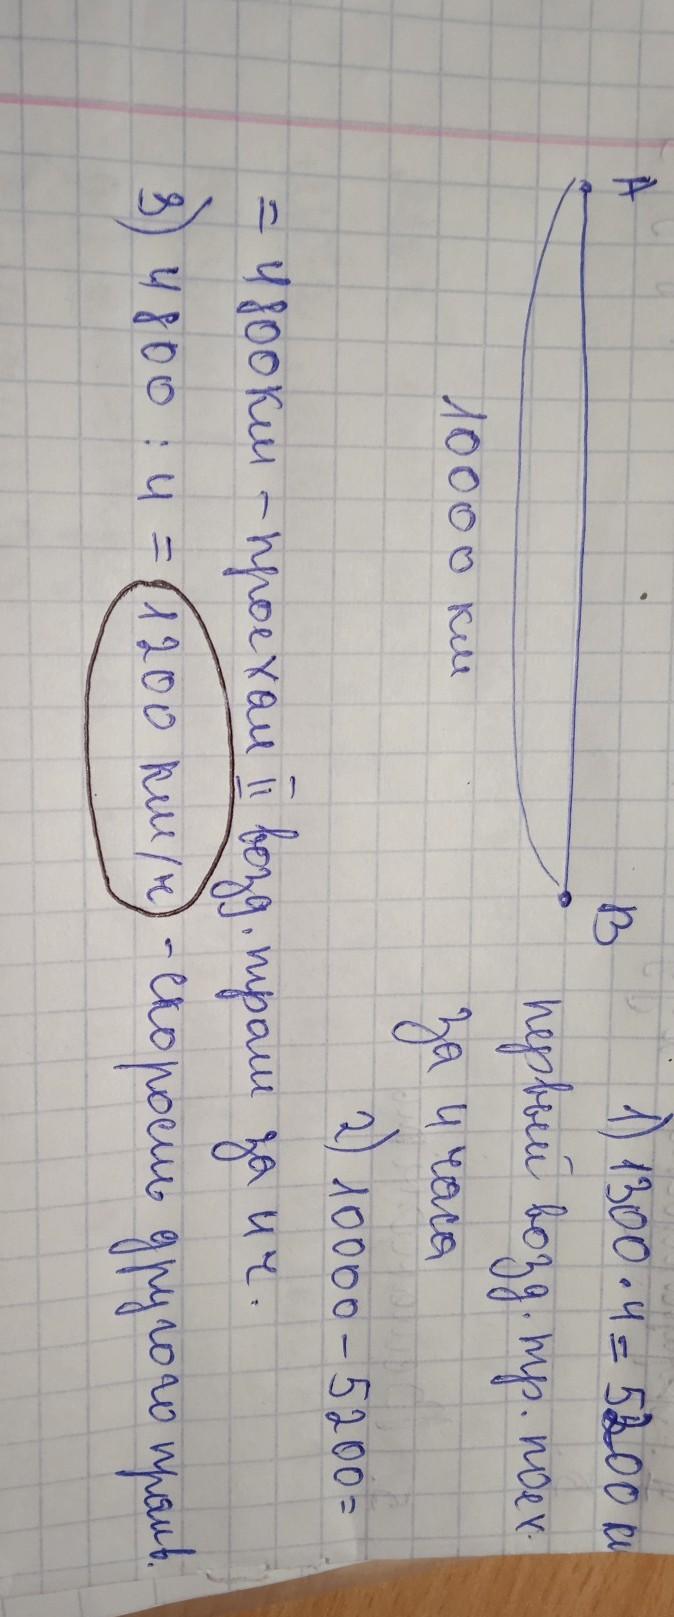 А В
1) 1300 · 4 = 5200 к
первый возд. тр. поех.
10000 км
за 4 часа
2) 10000 - 5200 =
= 4800 км - проехал II возд. трам за 4 ч.
3) 4800 : 4 = 1200 км/ч - скорость другого трамв.